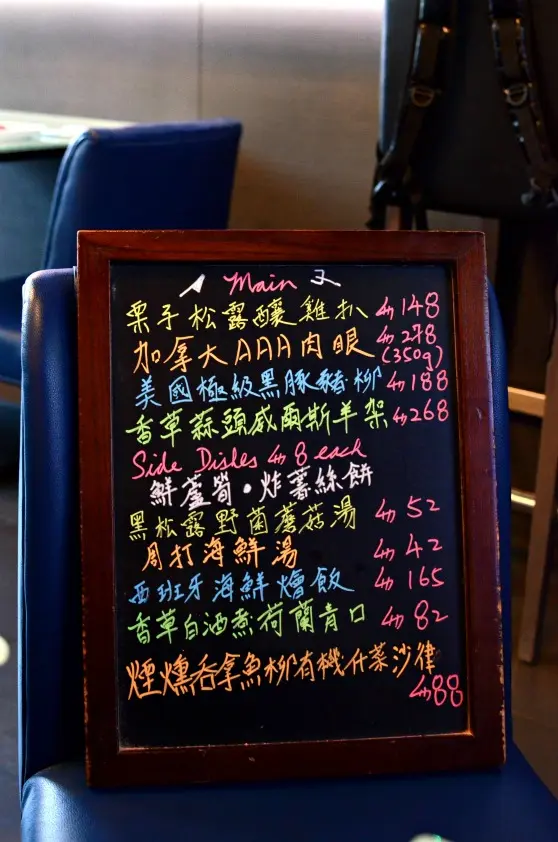 Main
栗子松露釀雞扒 $148
加拿大AAA肉眼 $278
(350g)
美國極級黑豚豬柳 $188
香草蒜頭威爾斯羊架 $268
Side Dishes $8 each
鮮蘆筍・炸薯絲餅
黑松露野菌蘑菇湯 $52
周打海鮮湯 $42
西班牙海鮮燴飯 $165
香草白酒煮荷蘭青口 $82
煙燻吞拿魚柳有機什菜沙律
$88